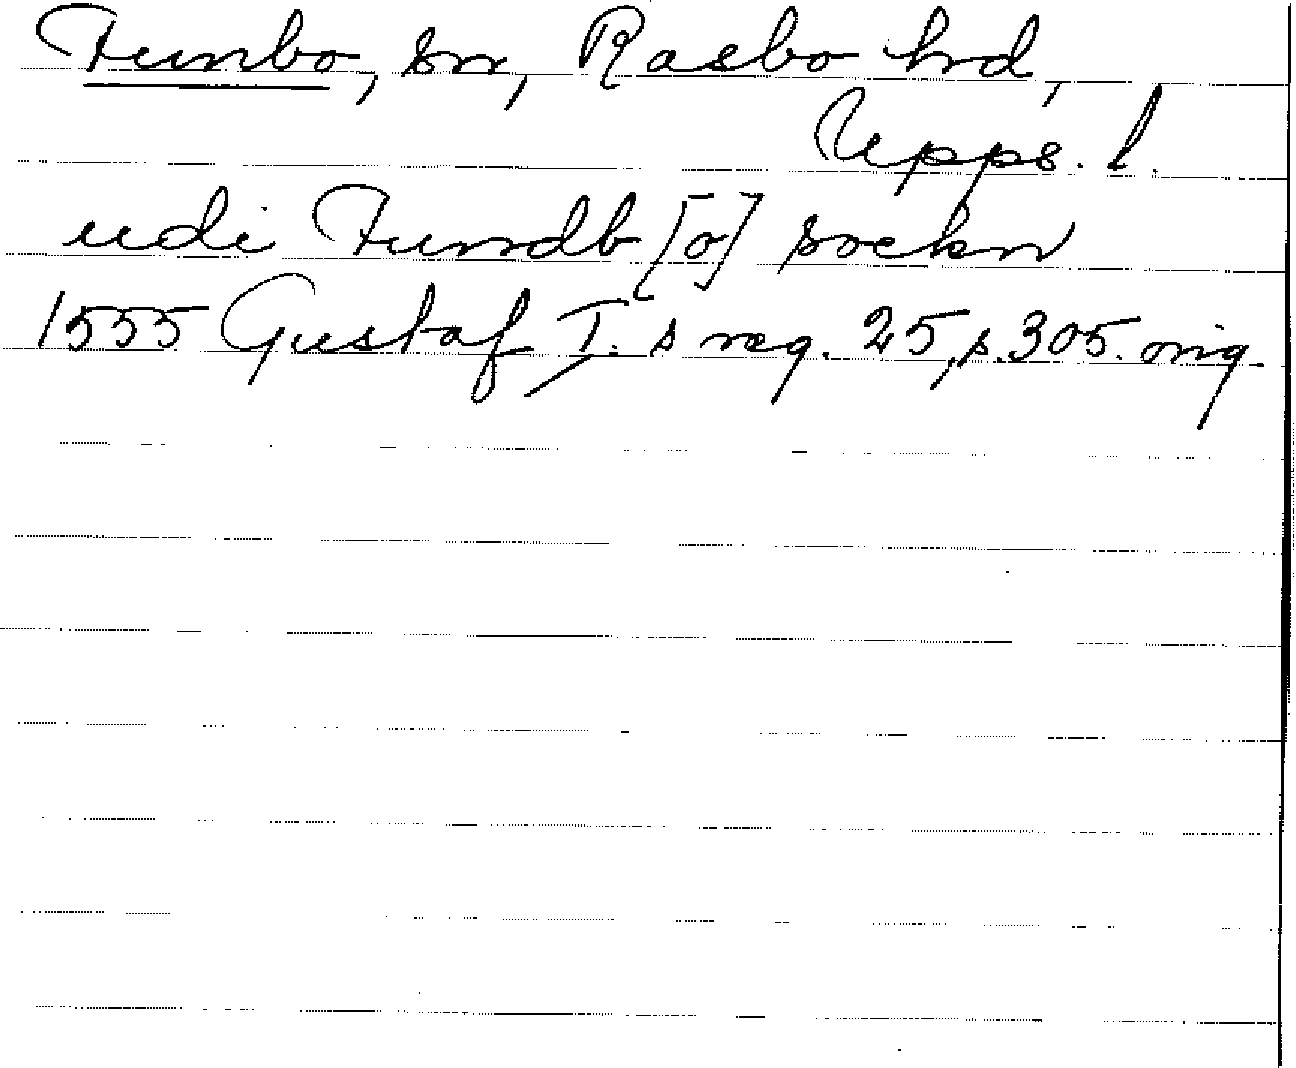 Funbo, sn, Rasbo hrd,
Upps. l.
udi Fundb[o] sockn
1555 Gustaf I. s reg. 25, s. 305. orig.